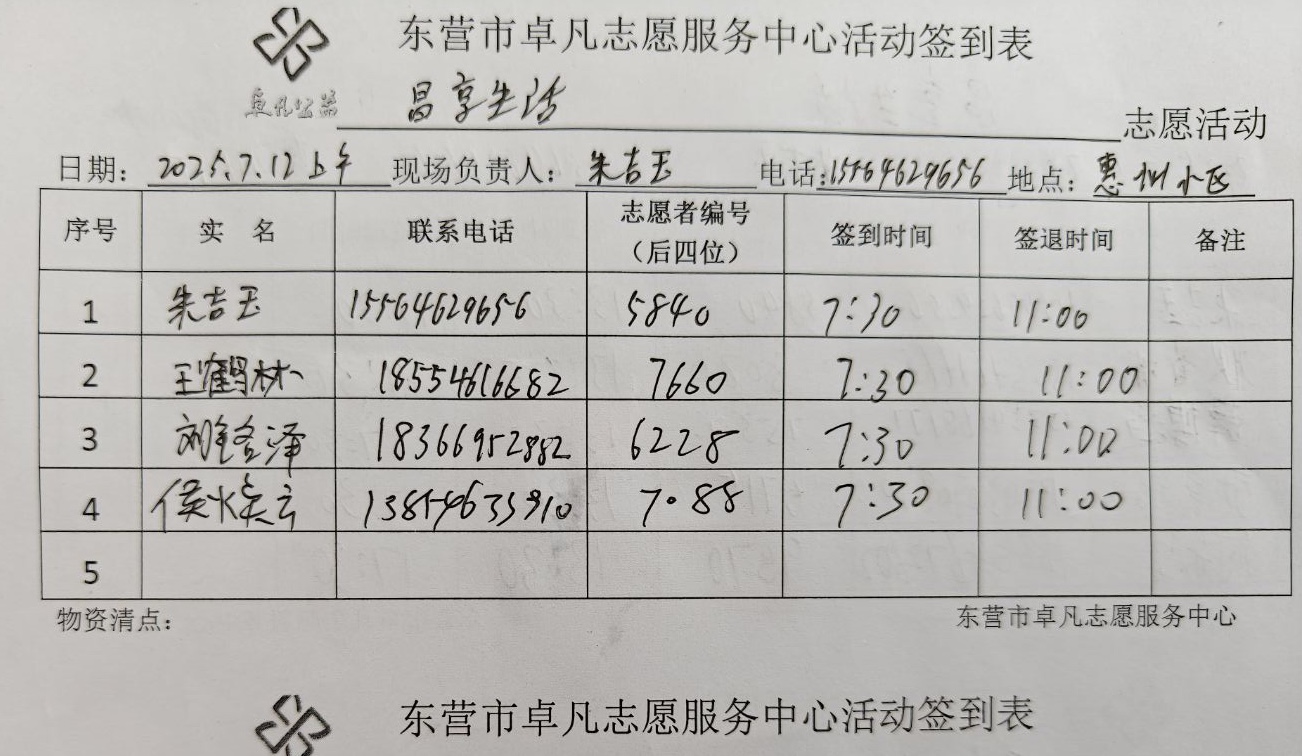 东营市卓凡志愿服务中心活动签到表
卓凡公益
昌享生活 志愿活动
日期：2025.7.12上午 现场负责人：朱吉玉 电话：15564629656 地点：惠州小区
序号 实 名 联系电话 志愿者编号（后四位） 签到时间 签退时间 备注
1 朱吉玉 15564629656 5840 7:30 11:00
2 王鹤林 18554616682 7660 7:30 11:00
3 刘 泽 18366952882 6228 7:30 11:00
4 侯 云 7088 7:30 11:00
5
物资清点： 东营市卓凡志愿服务中心
东营市卓凡志愿服务中心活动签到表